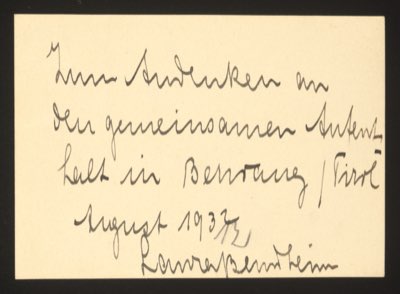 Zum Andenken an
den gemeinsamen Aufent=
halt in Behrang / Tirol
August 1932
Laura